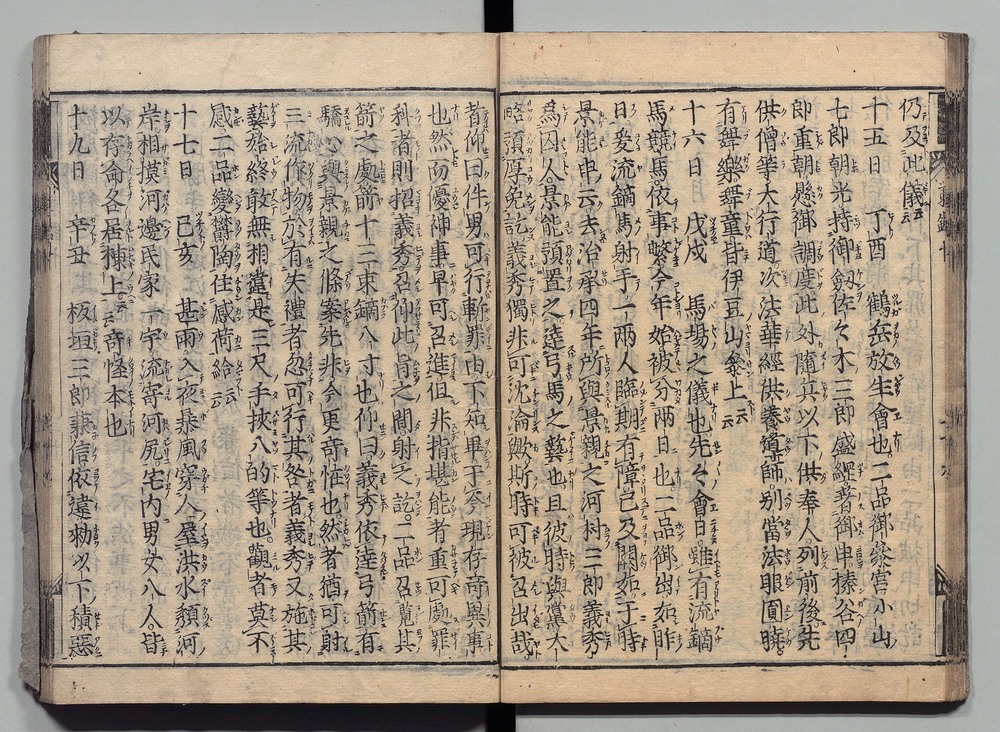 仍及此儀云云
十五日　丁酉　鶴岳放生會也二品御参宮小山
七郎朝光持御劔佐々木三郎盛綱著御甲榛谷四
郎重朝懸御調度此外隨兵以下供奉人列前後先
供僧等大行道次法華經供養導師別當法眼圓暁
有舞樂舞童皆伊豆山參上云云
十六日　戊戌　馬場之儀也先々會日雖有流鏑
馬競馬依事繁今年始被分兩日也二品御出如昨
日爰流鏑馬射手一兩人臨期有障已及闕如于時
景能申云去治承四年所與景親之河村三郎義秀
爲囚人景能預置之達弓馬之藝也且彼時與黨大
略預厚免訖義秀獨非可沈淪歟斯時可被召出哉
者仰曰件男可行斬罪由下知畢于今現存奇異事
也然而優神事早可召進但非指堪能者重可處罪
科者則招義秀召仰此旨之間射之訖二品召覽其
箭之處箭十三束鏑八寸也仰曰義秀依達弓箭有
驕心與景親之條案先非今更奇恠也然者猶可射
三流作物於有失禮者忽可行其咎者義秀又施其
藝始終敢無相違是三尺手挾八的等也觀者莫不
感二品變欝陶住感荷給云云
十七日　己亥　甚雨入夜暴風穿人屋洪水頽河
岸相摸河邊民家一宇流寄河尻宅内男女八人皆
以存命各居棟上云云奇恠本也
十九日　辛丑　板垣三郎兼信依違勅以下積惡